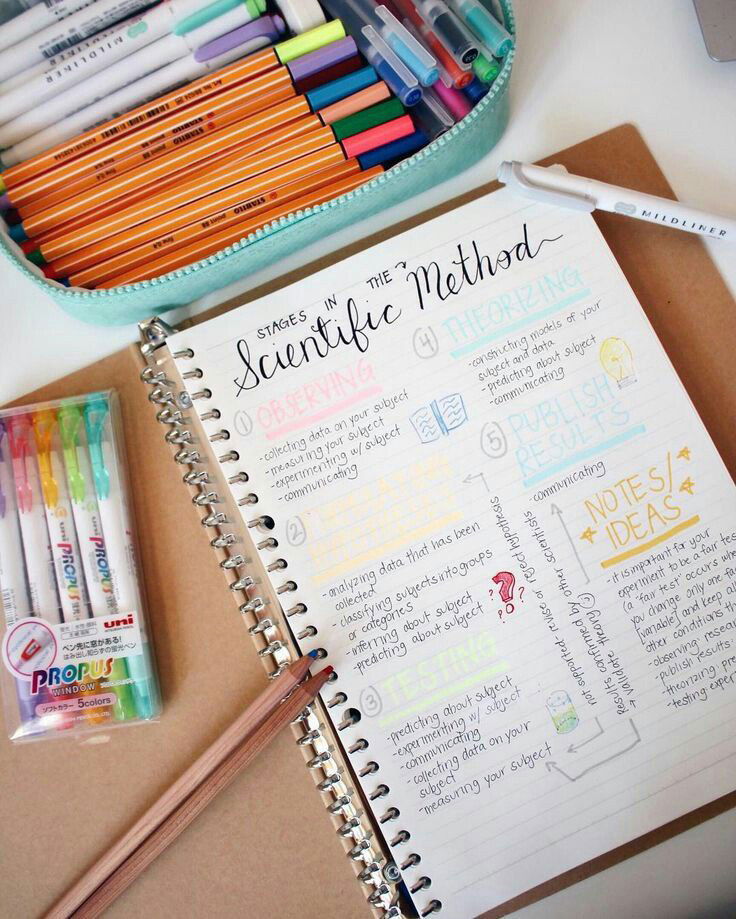 STAGES IN THE
Scientific Method
① OBSERVING
-collecting data on your subject
-measuring your subject
-experimenting w/ subject
-communicating
②
-analyzing data that has been
collected
-classifying subjects into groups
or categories
-inferring about subject
-predicting about subject
③ TESTING
-predicting about subject
-experimenting w/ subject
-communicating
-collecting data on your
subject
-measuring your subject
④ THEORIZING
-constructing models of your
subject and data
-predicting about subject
-communicating
⑤ PUBLISH
RESULTS
-communicating
not supported: revise or reject hypothesis
Results confirmed by other scientists
validate theory
NOTES/
IDEAS
-it is important for your
experiment to be a fair test
(a 'fair test' occurs when
you change only one fac
[variable] and keep all
other conditions th
-observing resear
publish results:
-theorizing pre
-testing: exper
MILDLINER
MILDLINER
STABILO
STABILO
STABILO
STABILO point 88 fine 0,4
PROPUS
PROPUS
uni
MITSUBISHI PENCIL
ペン先に窓がある!
はみ出し知らずの蛍光ペン
PROPUS
WINDOW
ソフトカラー 5colors